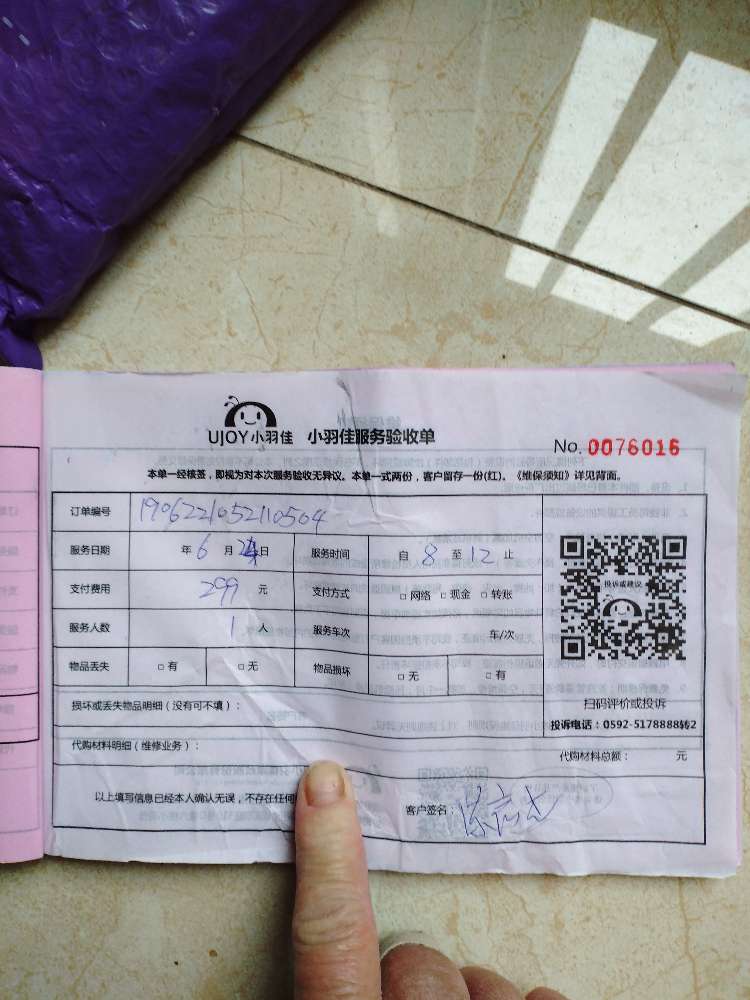 UJOY小羽佳 小羽佳服务验收单
No. 0076016
本单一经核签，即视为对本次服务验收无异议。本单一式两份，客户留存一份(红)。《维保须知》详见背面。
订单编号 1906221052110504
服务日期 年 6 月 24 日 服务时间 自 8 至 12 止
投诉或建议
支付费用 299 元 支付方式 □ 网络 □ 现金 □ 转账
服务人数 1 人 服务车次 车/次
物品丢失 □ 有 □ 无 物品损坏 □ 无 □ 有
扫码评价或投诉
损坏或丢失物品明细（没有可不填）：
投诉电话：0592-5178888转2
代购材料明细（维修业务）：
代购材料总额： 元
以上填写信息已经本人确认无误，不存在任何
客户签名：